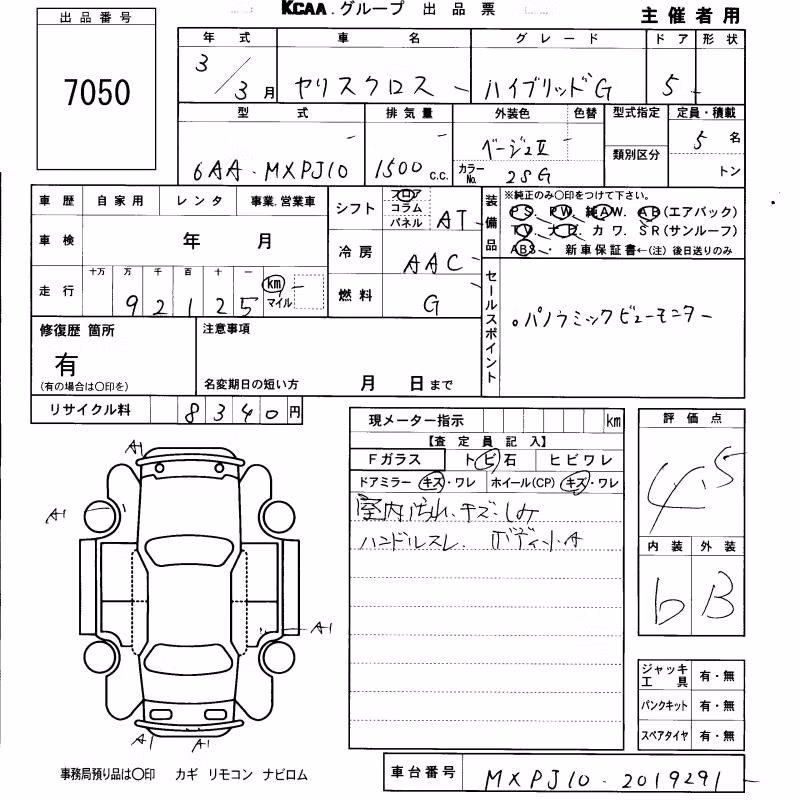 KCAA.グループ 出品票
主催者用
出品番号
7050
年式 車名 グレード ドア 形状
3/3月 ヤリスクロス ハイブリッドG 5
型式 排気量 外装色 色替 型式指定 定員・積載
類別区分
6AA-MXPJ10 1500 c.c. ベージュII カラーNo. 2SG 5名
トン
車歴 自家用 レンタ 事業.営業車
車検 年 月
走行 十万 万 千 百 十 一
92125 km マイル
シフト フロア コラム パネル AT
冷房 AAC
燃料 G
装備品
※純正のみ〇印をつけて下さい。
PS. PW. 純AW. AB(エアバック)
TV. ナビ カワ. SR(サンルーフ)
ABS・ 新車保証書←(注) 後日送りのみ
セールスポイント
。パノラミックビューモニター
修復歴 箇所
有
(有の場合は〇印を)
注意事項
名変期日の短い方 月 日まで
リサイクル料 8340円
現メーター指示 km
【査定員記入】
Fガラス トビ石 ヒビワレ
ドアミラー キズ・ワレ ホイール(CP) キズ・ワレ
室内汚れ、キズ・シミ
ハンドルスレ. ボディ小・A
評価点
4.5
内装 外装
b B
A1
A1
A1
A1 A1
ジャッキ工具 有・無
パンクキット 有・無
スペアタイヤ 有・無
事務局預り品は〇印 カギ リモコン ナビロム
車台番号 MXPJ10-2019291